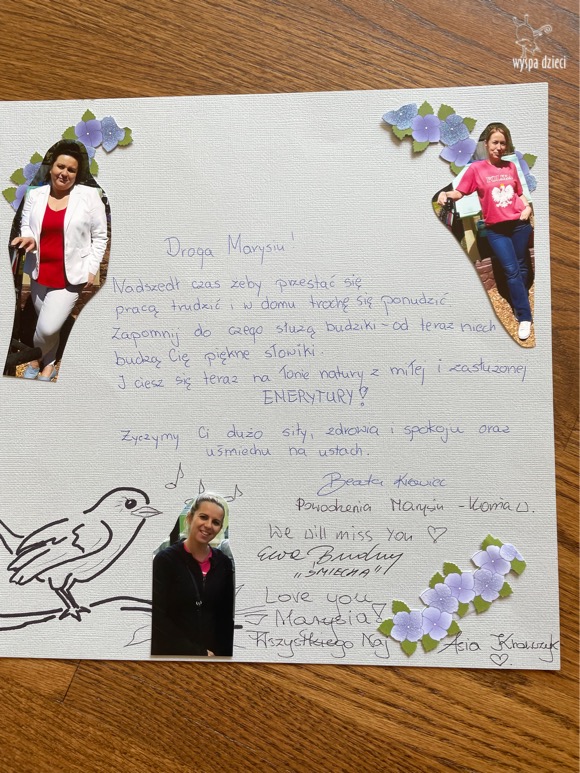 wyspa dzieci
Droga Marysiu!
Nadszedł czas żeby przestać się
pracą trudzić i w domu trochę się ponudzić.
Zapomnij do czego służą budziki - od teraz niech
budzą Cię piękne słowiki.
I ciesz się teraz na łonie natury z miłej i zasłużonej
ENERYTURY!
Życzymy Ci dużo siły, zdrowia i spokoju oraz
uśmiechu na ustach.
Beata
Powodzenia Marysiu -
We will miss you ♡
Ewa Budny
"ŚMIECHA"
Love you
Marysia!
Wszystkiego Naj
Asia Krawczyk
♡